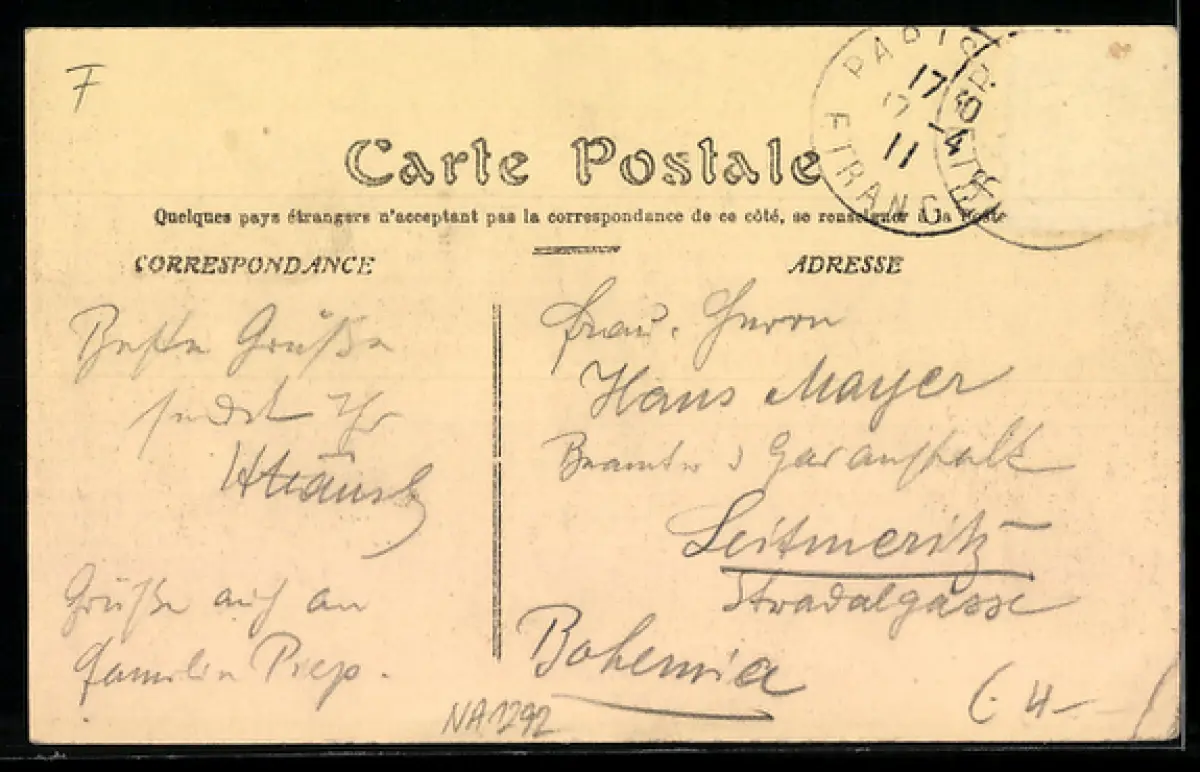 F
PARIS
ETRANGER
17
4
11
Carte Postale
Quelques pays étrangers n'acceptent pas la correspondance de ce côté, se renseigner à la Poste
CORRESPONDANCE
ADRESSE
Beste Grüße
sendet Ihr
Grüße auch an
Familie
Herrn
Hans Mayer
Beamter d Gasanstalt
Leitmeritz
Stradalgasse
Bohemia
NA1292